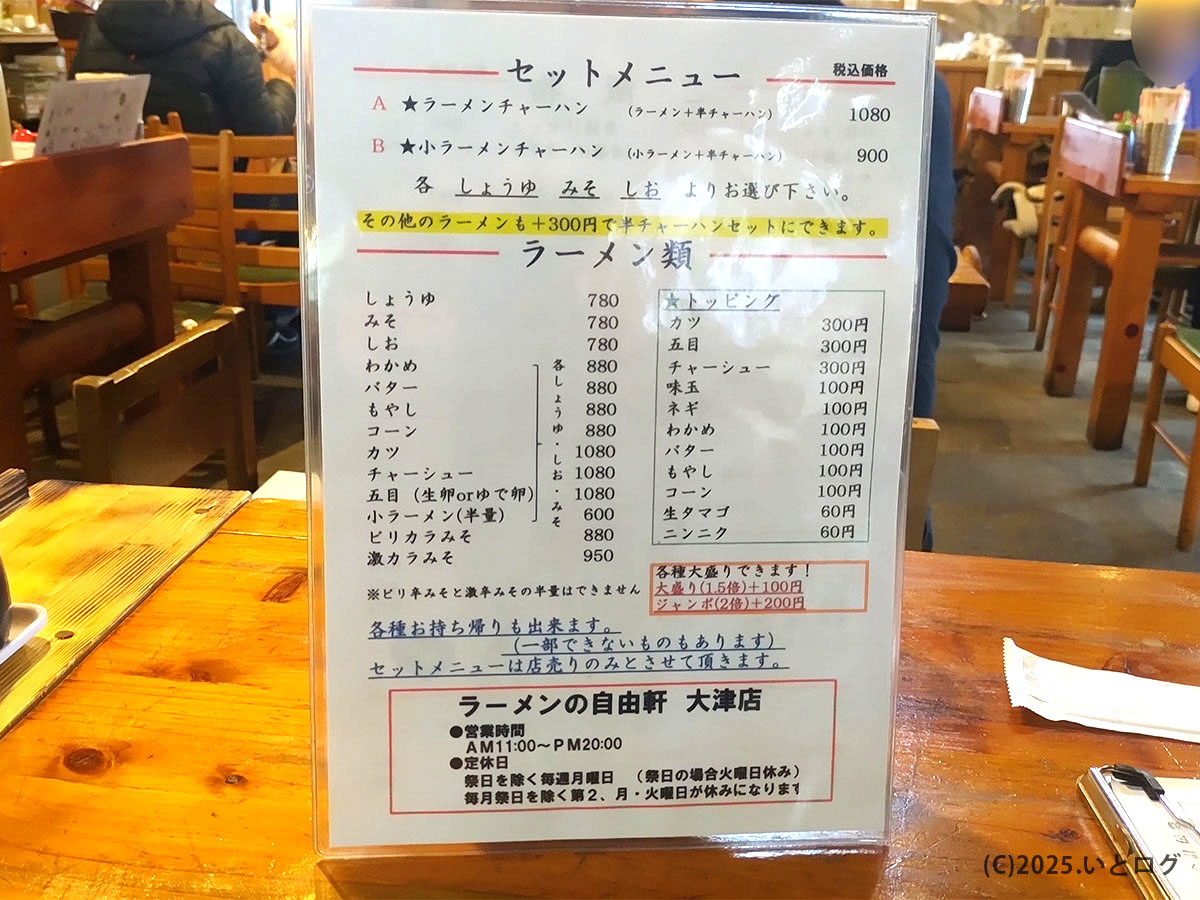 セットメニュー 税込価格
A ★ラーメンチャーハン (ラーメン+半チャーハン) 1080
B ★小ラーメンチャーハン (小ラーメン+半チャーハン) 900
各 しょうゆ みそ しお よりお選び下さい。
その他のラーメンも+300円で半チャーハンセットにできます。
ラーメン類
しょうゆ 780
みそ 780
しお 780
わかめ 880
バター 880
もやし 880
コーン 880
カツ 1080
チャーシュー 1080
五目 (生卵orゆで卵) 1080
小ラーメン(半量) 600
ピリカラみそ 880
激カラみそ 950
各しょうゆ・しお・みそ
※ピリ辛みそと激辛みその半量はできません
★トッピング
カツ 300円
五目 300円
チャーシュー 300円
味玉 100円
ネギ 100円
わかめ 100円
バター 100円
もやし 100円
コーン 100円
生タマゴ 60円
ニンニク 60円
各種大盛りできます!
大盛り(1.5倍)+100円
ジャンボ(2倍)+200円
各種お持ち帰りも出来ます。
(一部できないものもあります)
セットメニューは店売りのみとさせて頂きます。
ラーメンの自由軒 大津店
●営業時間
AM11:00~PM20:00
●定休日
祭日を除く毎週月曜日 (祭日の場合火曜日休み)
毎月祭日を除く第2、月・火曜日が休みになります
(C)2025.いとログ